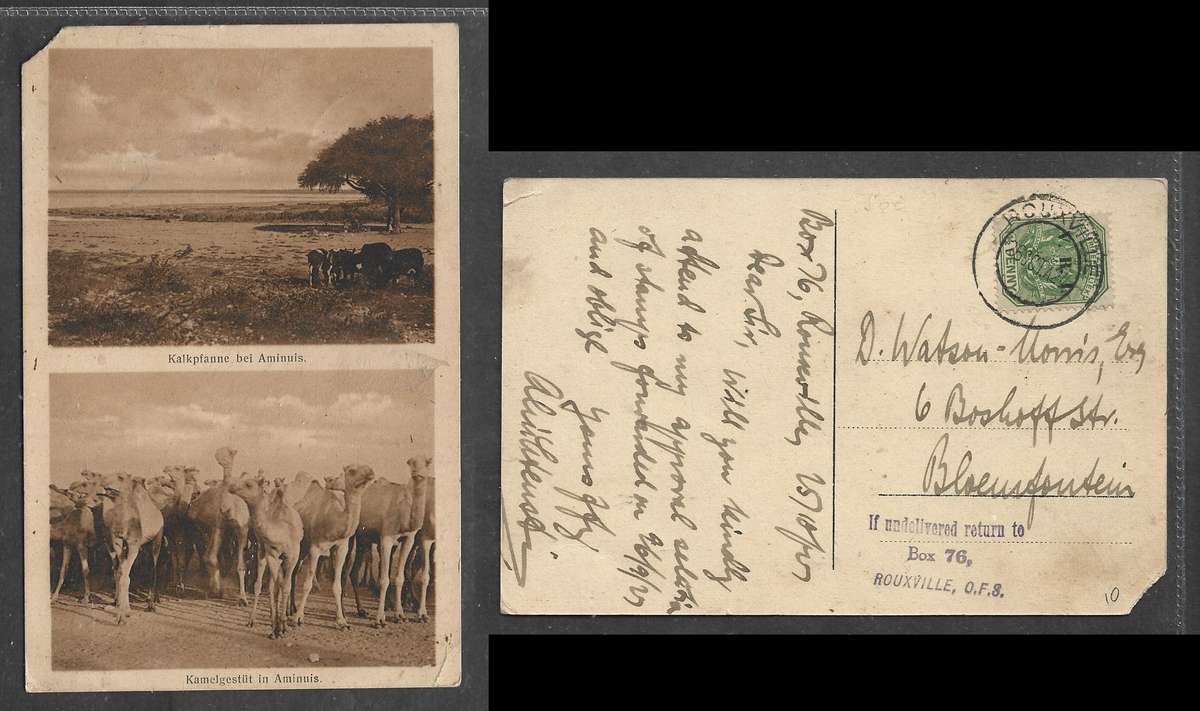 Kalkpfanne bei Aminuis.
Kamelgestüt in Aminuis.
Box 76, Rouxville
Dear Sir, Will you kindly
attend to my approval selection
of stamps forwarded on
and oblige
Yours ffy
ROUXVILLE
D. Watson-Morris, Esq
6 Boshoff Str.
Bloemfontein
If undelivered return to
Box 76,
ROUXVILLE, O.F.S.
10